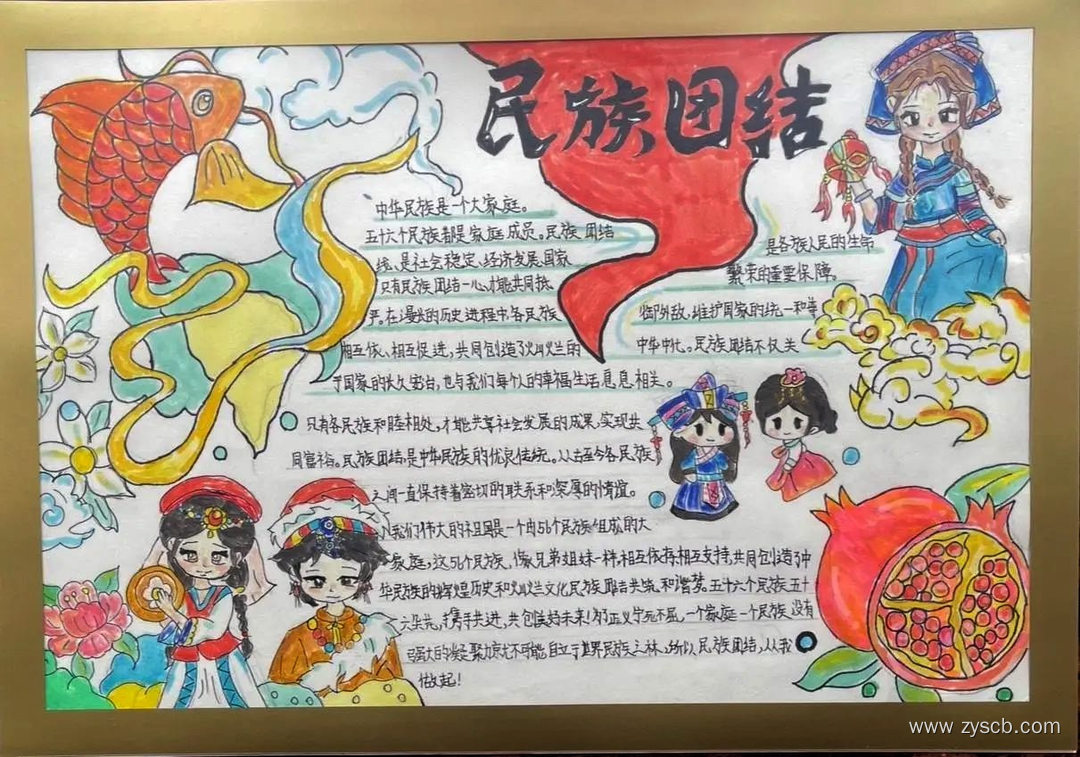 民族团结
中华民族是一个大家庭。
五十六个民族都是家庭成员。民族团结 是各族人民的生命
线、是社会稳定、经济发展、国家 繁荣的重要保障。
只有民族团结一心,才能共同抵 御外敌,维护国家的统一和尊
严。在漫长的历史进程中,各民族 中华
相互依、相互促进,共同创造了灿烂的 民族团结不仅关
于国家的长久安治,也与我们每个人的幸福生活息息相关。
只有各民族和睦相处,才能共享社会发展的成果,实现共
同富裕。民族团结是中华民族的优良传统。从古至今各民族
之间一直保持着密切的联系和深厚的情谊。
我们伟大的祖国是一个由56个民族组成的大
家庭,这56个民族,像兄弟姐妹一样,相互依存,相互支持,共同创造了中
华民族的辉煌历史和灿烂文化,民族 五十六个民族五十
六朵花,携手共进,共创美好未来! 正义宁死不屈,一个家庭一个民族没有
强大的凝聚力 不可能自立于世界民族之林,所以民族团结,从我
做起!
www.zyscb.com